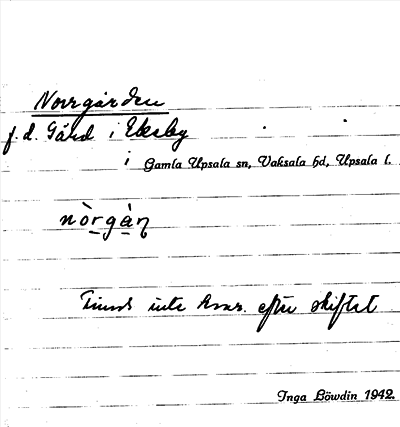 Norrgården
f.d. Gård i Ekeby
i Gamla Upsala sn, Vaksala hd, Upsala l.
nòrgàn̥
Finns inte kvar efter skiftet
Inga Löwdin 1942.